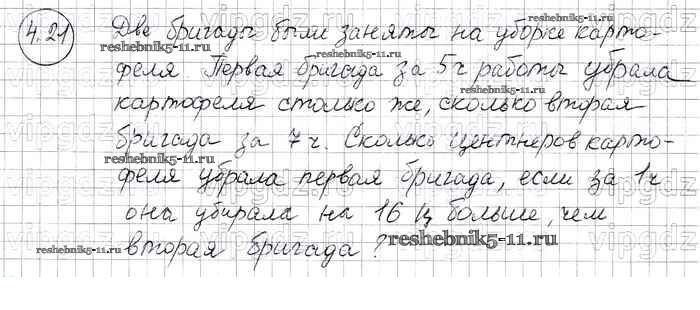 4.21
Две бригады были заняты на уборке карто-
reshebnik5-11.ru
феля. Первая бригада за 5ч работы убрала
картофеля столько же, сколько вторая
бригада за 7 ч. Сколько центнеров карто-
reshebnik5-11.ru
феля убрала первая бригада, если за 1ч
она убирала на 16 ц больше, чем
вторая бригада?
reshebnik5-11.ru
reshebnik5-11.ru